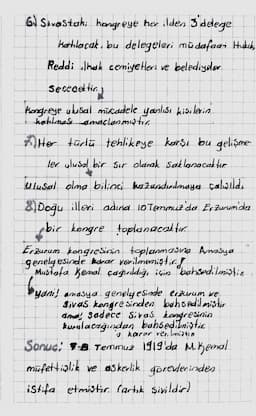 6) Sivastaki kongreye her ilden 3 delege
katılacak, bu delegeleri müdafaai Hukuk,
Reddi ilhak cemiyetleri ve belediyeler
seçecektir.
Kongreye ulusal mücadele yanlısı kişilerin
katılması amaçlanmıştır.
7) Her türlü tehlikeye karşı bu gelişme
ler ulusal bir sır olarak saklanacaktır
Ulusal olma bilinci kazandırılmaya çalışıldı
8) Doğu illeri adına 10 Temmuz'da Erzurum'da
bir kongre toplanacaktır.
Erzurum kongresinin toplanmasına Amasya
genelgesinde karar verilmemiştir!
Mustafa Kemal çağrıldığı için bahsedilmiştir
yani; amasya genelgesinde erzurum ve
sivas kongresinden bahsedilmiştir
ama, sadece sivas kongresinin
kurulacağından bahsedilmiştir.
a karar verilmiştir
Sonuç: 7-8 Temmuz 1919'da M. Kemal
müfettişlik ve askerlik görevlerinden
istifa etmiştir. (artık sivildir)